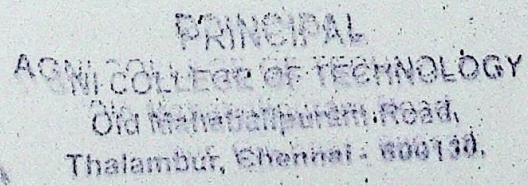 PRINCIPAL
AGNI COLLEGE OF TECHNOLOGY
Old Mahabalipuram Road,
Thalambur, Chennai - 600130.